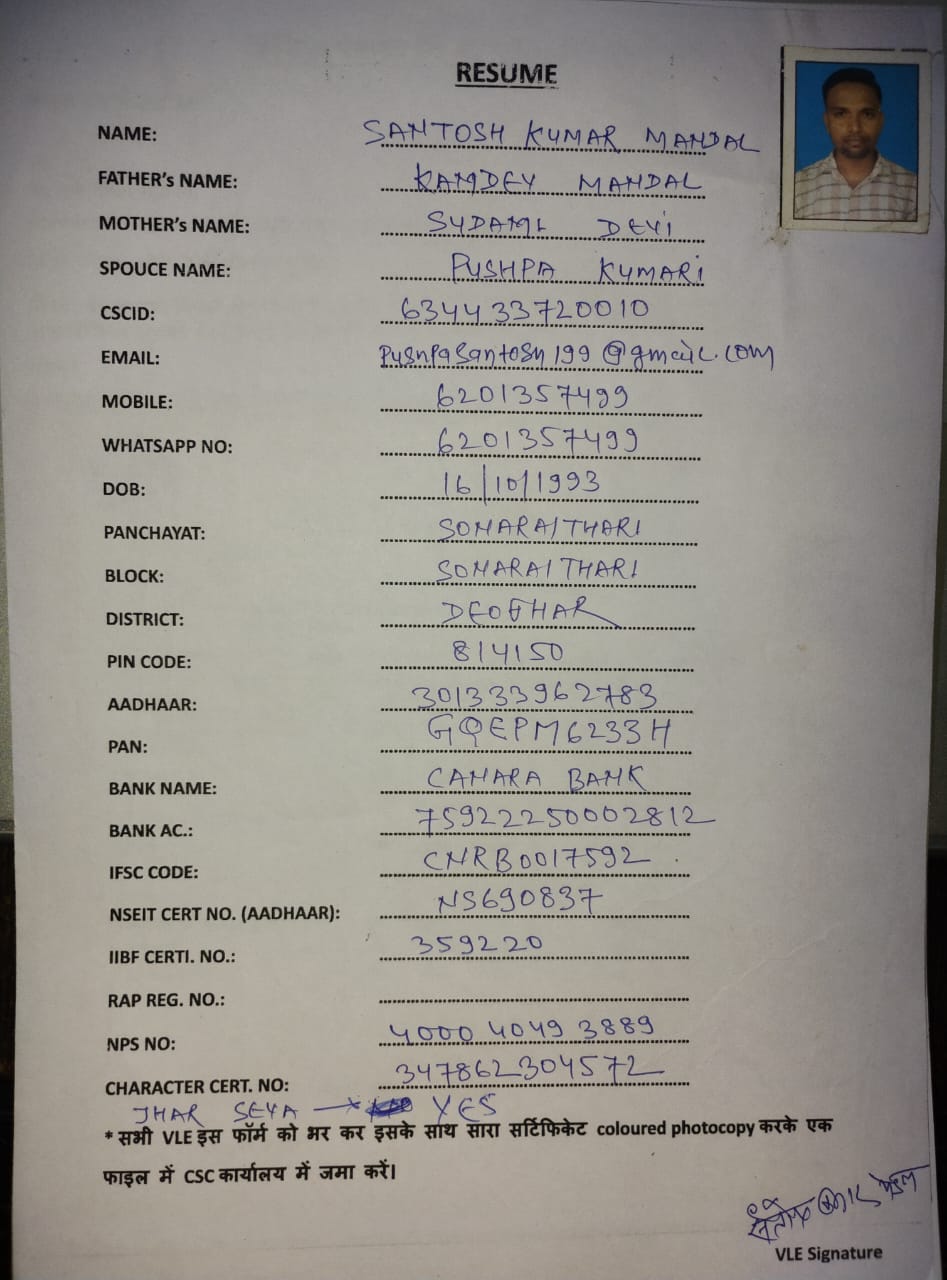 RESUME
NAME: SANTOSH KUMAR MANDAL
FATHER's NAME: KAMDEV MANDAL
MOTHER's NAME: DEVI
SPOUCE NAME: PUSHPA KUMARI
CSCID: 634433720010
EMAIL: pushpasantosh199@gmail.com
MOBILE: 6201357499
WHATSAPP NO: 6201357499
DOB: 16/10/1993
PANCHAYAT: SONARAITHARI
BLOCK: SONARAITHARI
DISTRICT: DEOGHAR
PIN CODE: 814150
AADHAAR: 301333962783
PAN: GQEPM6233H
BANK NAME: CANARA BANK
BANK AC.: 75922250002812
IFSC CODE: CNRB0017592
NSEIT CERT NO. (AADHAAR): NS690837
IIBF CERTI. NO.: 359220
RAP REG. NO.:
NPS NO: 4000 4049 3889
CHARACTER CERT. NO: 347862304572
JHAR SEVA → YES
* सभी VLE इस फॉर्म को भर कर इसके साथ सारा सर्टिफिकेट coloured photocopy करके एक
फाइल में CSC कार्यालय में जमा करें।
संतोष कुमार मंडल
VLE Signature